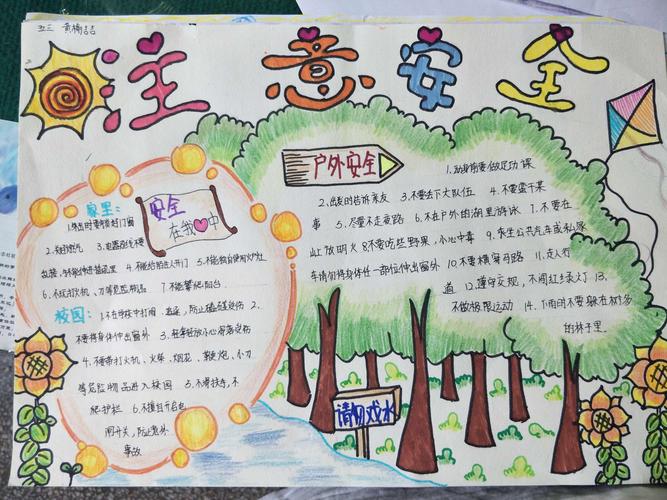 五三 黄楠喆
注意安全
安全
在我心中
家里:
1.外出时要锁好门窗
2.关好燃气 3.电器起火不要
4.不能给陌生人开门 5.不能独自使用火炉灶
6.不玩打火机、刀等危险物品 7.不能攀爬阳台
校园:
1.不在楼梯中打闹、追逐,防止磕碰受伤 2.
不要将身体伸出窗外 3.轻拿轻放小心滑落受伤
4.不要带打火机、火柴、烟花、鞭炮、小刀
等危险物品进入校园 5.不要扶手,不
爬护栏 6.不擅自开启电
闸开关,防止意外
事故
户外安全
1.动身前要做足功课
2.出发时告诉亲友 3.不要丢下大队伍 4.不要蛮干某
事 5.尽量不走夜路 6.不在户外的湖里游泳 7.不要在
山上放明火 8.不要吃些野果,小心中毒 9.乘坐公共汽车或私家
车请勿将身体任一部位伸出窗外 10.不要横穿马路 11.走人行
道 12.遵守交规,不闯红绿灯 13.
不做极限运动 14.下雨时不要躲在树多
的林子里.
请勿戏水